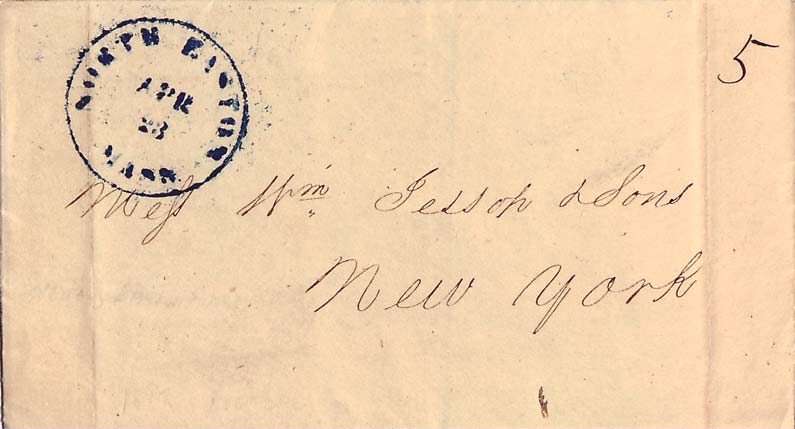 NORTH EASTON
APR
28
MASS
5
Mess Wm Jessop & Sons
New York